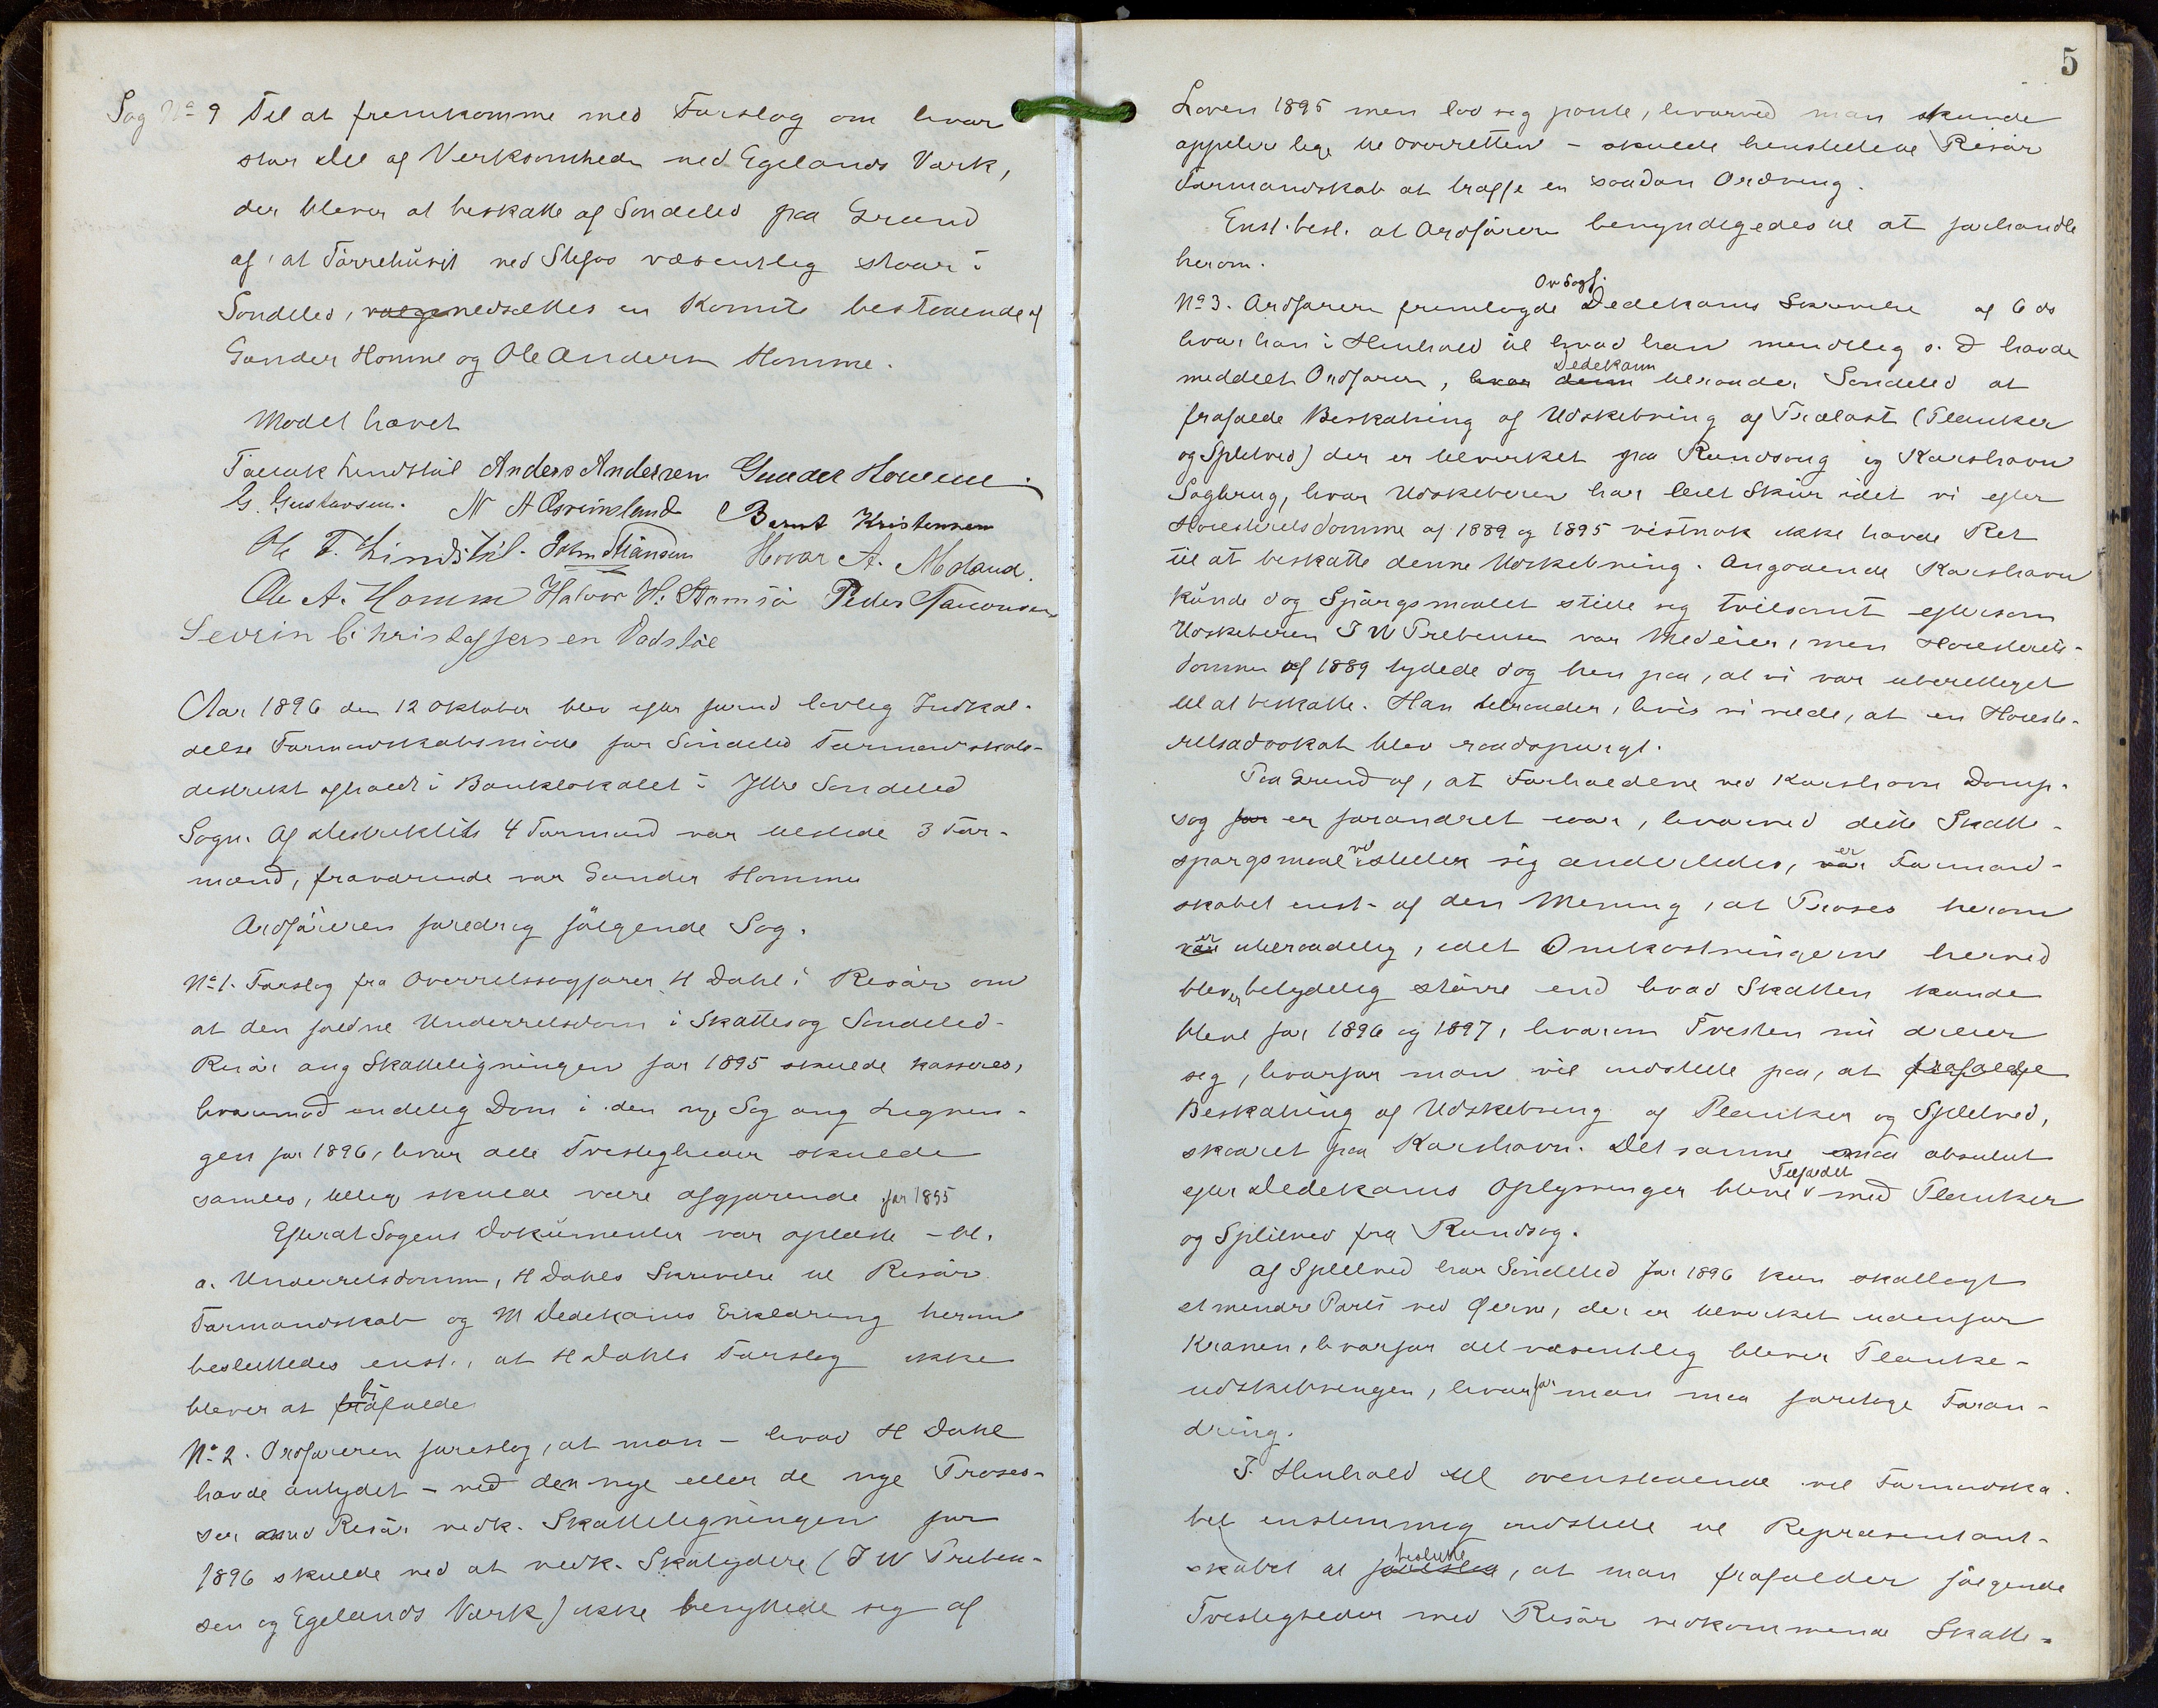 Sag No 9 Til at fremkomme med Forslag om hvor
stor Del af Verksomheden ved Egelands Værk,
der bliver at beskatte af Søndeled paa Grund
af, at Tørrehuset ved Stifos væsentlig staar i
Søndeled, vælge nedsættes en Komite bestaaende af
Gunder Homme og Ole Andersen Homme.
Mødet hævet
Tarak Lindstøl Anders Andersen Gunder Homme
G. Gustavsen. N A Espeimsland Bernt Kristensen
Ole T. Lindstøl. John Stiansen Hovar A. Moland.
Ole A. Homme Halvor H. Stamsø Peder Taraldsen
Sevrin Christoffersen Vadstøl
Aar 1896 den 12 oktober blev efter forud lovlig Indkal-
delse Formandskabsmøde for Søndeled Formandskabs-
destrikt afholdt i Banklokalet i Ytre Søndeled
Sogn. Af Destriktets 4 Formænd var tilstede 3 For-
mænd, fraværende var Gunder Homme
Ordføreren foredrog følgende Sag.
No 1. Forslag fra Overretssagfører H Dahl i Risør om
at den faldne Underretsdom i Skattesag Søndeled-
Risør ang Skatteligningen for 1895 skulde kasseres,
hvorimod endelig Dom i den nye Sag ang Lignin-
gen for 1896, hvor alle Tvistigheder skulde
samles, tillige skulde være afgjørende for 1895
Efterat Sagens Dokumenter var oplæste - bl.
a. Underretsdommen, H Dahls Skrivelse til Risør
Formandskab og M Dedekams Erklæring herom
besluttedes enst., at H Dahls Forslag ikke
bliver at fra bifalde
No 2. Ordføreren foreslog, at man - hvad H Dahl
havde antydet - ved den nye eller de nye Proses-
ser med Risør vedk. Skatteligningen for
1896 skulde ved at vedk. Skatydere (J W Preben-
sen og Egelands Værk) ikke benyttede sig af
5
Loven 1895 men lod sig pante, hvorved man kunde
appeler lige til Overretten - skulde henstille til Risør
Formandskab at træffe en saadan Ordning.
Enst. besl. at Ordføreren bemyndigedes til at forhandle
herom.
No 3. Ordføreren fremlagde Ovsagf. Dedekams Skrivelse af 6 ds
hvor han i Henhold til hvad han mundtlig s. D havde
meddelt Ordføreren, hvor denn Dedekam tilraader Søndeled at
frafalde Beskatning af Udskibning af Trælast (Planker
og Splitved) der er tilvirket paa Rundsaug og Karshavn
Sagbrug, hvor Udskiberen har leiet Skur idet vi efter
Høiesteretsdomme af 1889 og 1895 vistnok ikke havde Ret
til at beskatte denne Udskibning. Angaaende Karshavn
kunde dog Spørgsmaalet stille sig tvilsomt eftersom
Udskiberen J W Prebensen var Medeier, men Høiesterets-
dommen af 1889 tydede dog hen paa, at vi var uberettiget
til at beskatte. Han tilraader, hvis vi vilde, at en Høieste-
retsadvokat blev raadspurgt.
Paa Grund af, at Forholdene ved Karshavn Damp-
sag for er forandret iaar, hvorved dette Skatte-
spørgsmaal vil stiller sig anderledes, var er Formand-
skabet enst. af den Mening, at Proses herom
var er utilraadelig, idet Omkostningerne herved
bliver betydelig større end hvad Skatten kunde
blive for 1896 og 1897, hvorom Tvisten nu dreier
seg, hvorfor man vil indstille paa, at frafalde
Beskatning af Udskibning af Planker og Splitved,
skaaret paa Karshavn. Det samme maa absolut
efter Dedekams Oplysninger blive Tilfældet med Planker
og Splitved fra Rundsag.
Af Splitved har Søndeled for 1896 kun skatlagt
et mindre Parti ved Øerne, der er tilvirket udenfor
Kranen, hvorfor det væsentlig bliver Planke-
udskibningen, hvorfor man maa foretage Foran-
dring.
I Henhold til ovenstaaende vil Formandska-
bet enstemmig indstille til Repræsentant-
skabet at foreslaa beslutte, at man frafalder følgende
Tvistigheder med Risør vedkommende Skatte-